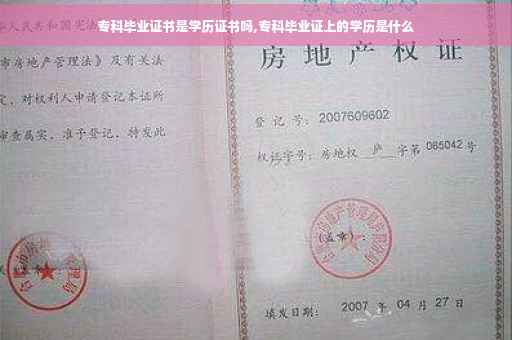 专科毕业证书是学历证书吗,专科毕业证上的学历是什么
人民共和国宪法
市房地产管理法》及有关法
定,对权利人申请登记本证所
审查属实,准予登记,特发此
房地产权证
登记号: 2007609602
权证字号: 房地权 庐 字第 065042 号
(盖章):
填发日期: 2007 年 04 月 27 日